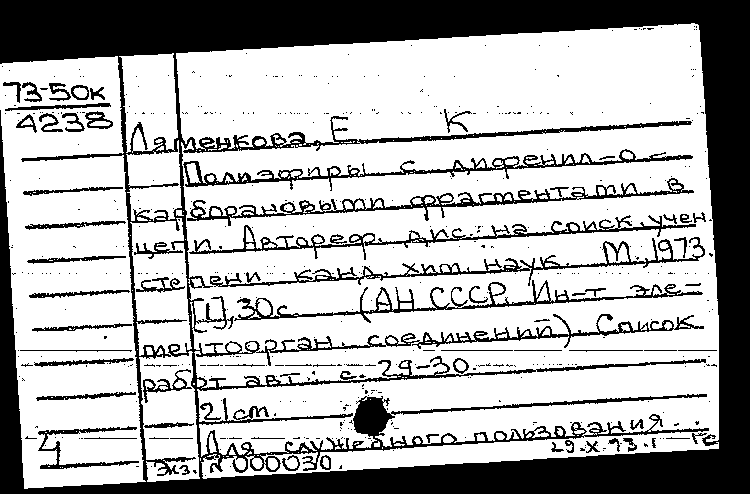 73-50к
4238
Ляменкова, Е К
Полиэфиры с дифенил-о-
карборановыми фрагментами в
цепи. Автореф. дис. на соиск. учен.
степени канд. хим. наук. М., 1973.
[1], 30с. (АН СССР. Ин-т эле-
ментоорган. соединений). Список
работ авт.: с. 29-30.
21 см.
Для служебного пользования.
Экз. №000030.
29.X.73.
4